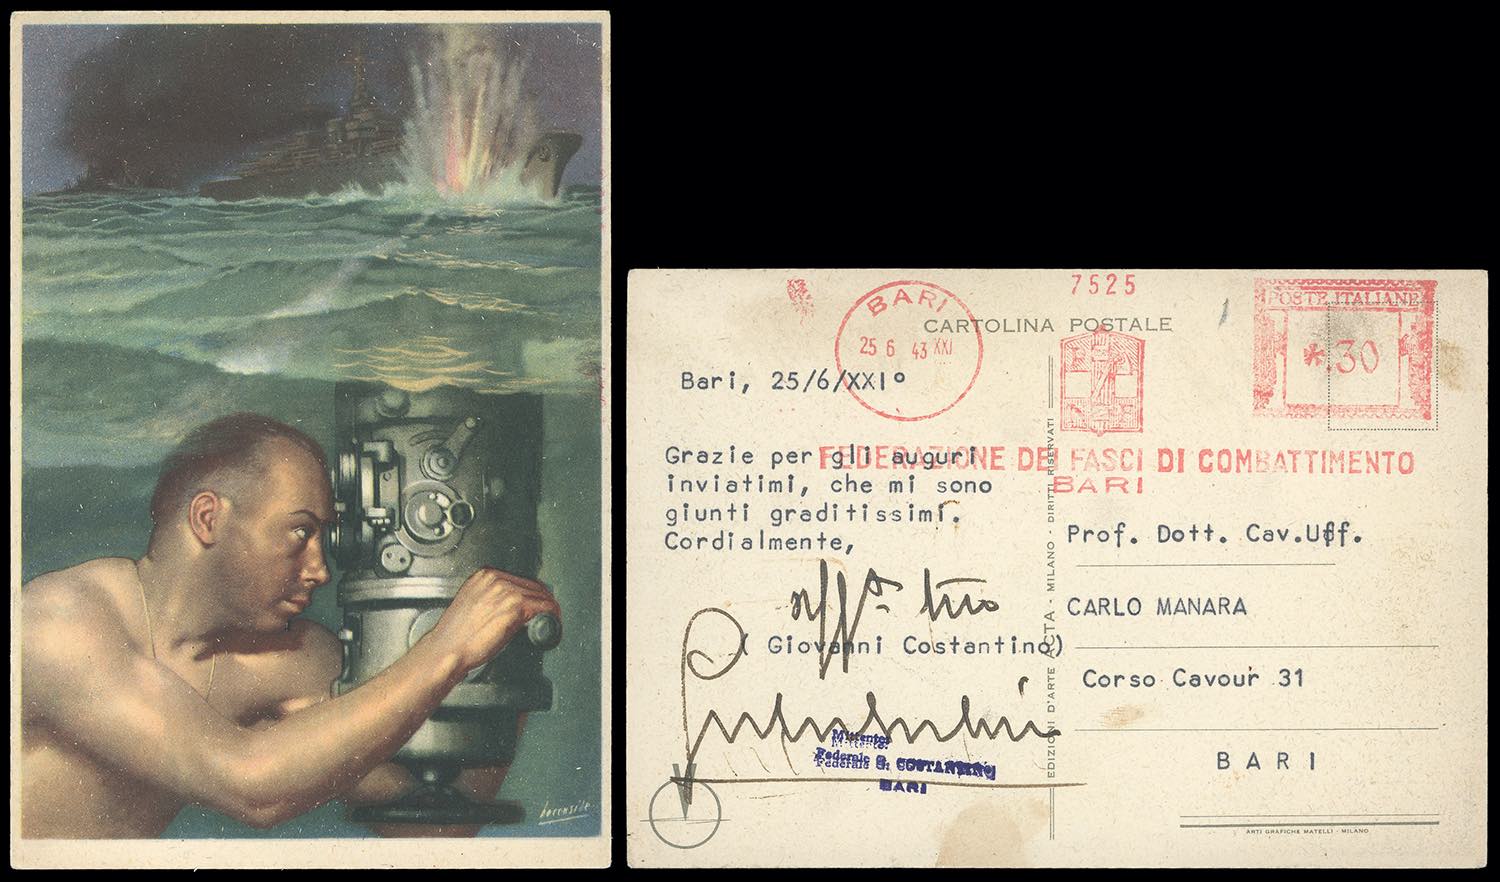 Boccasile
7525
BARI
25 6 43 XXI
POSTE ITALIANE
*.30
CARTOLINA POSTALE
Bari, 25/6/XXI°
FEDERAZIONE DEI FASCI DI COMBATTIMENTO
BARI
Grazie per gli auguri
inviatimi, che mi sono
giunti graditissimi.
Cordialmente,
aff.º tuo
( Giovanni Costantino)
Mittente:
Federale G. COSTANTINO
BARI
EDIZIONI D'ARTE ACTA - MILANO - DIRITTI RISERVATI
Prof. Dott. Cav.Uff.
CARLO MANARA
Corso Cavour 31
BARI
ARTI GRAFICHE MATELLI - MILANO